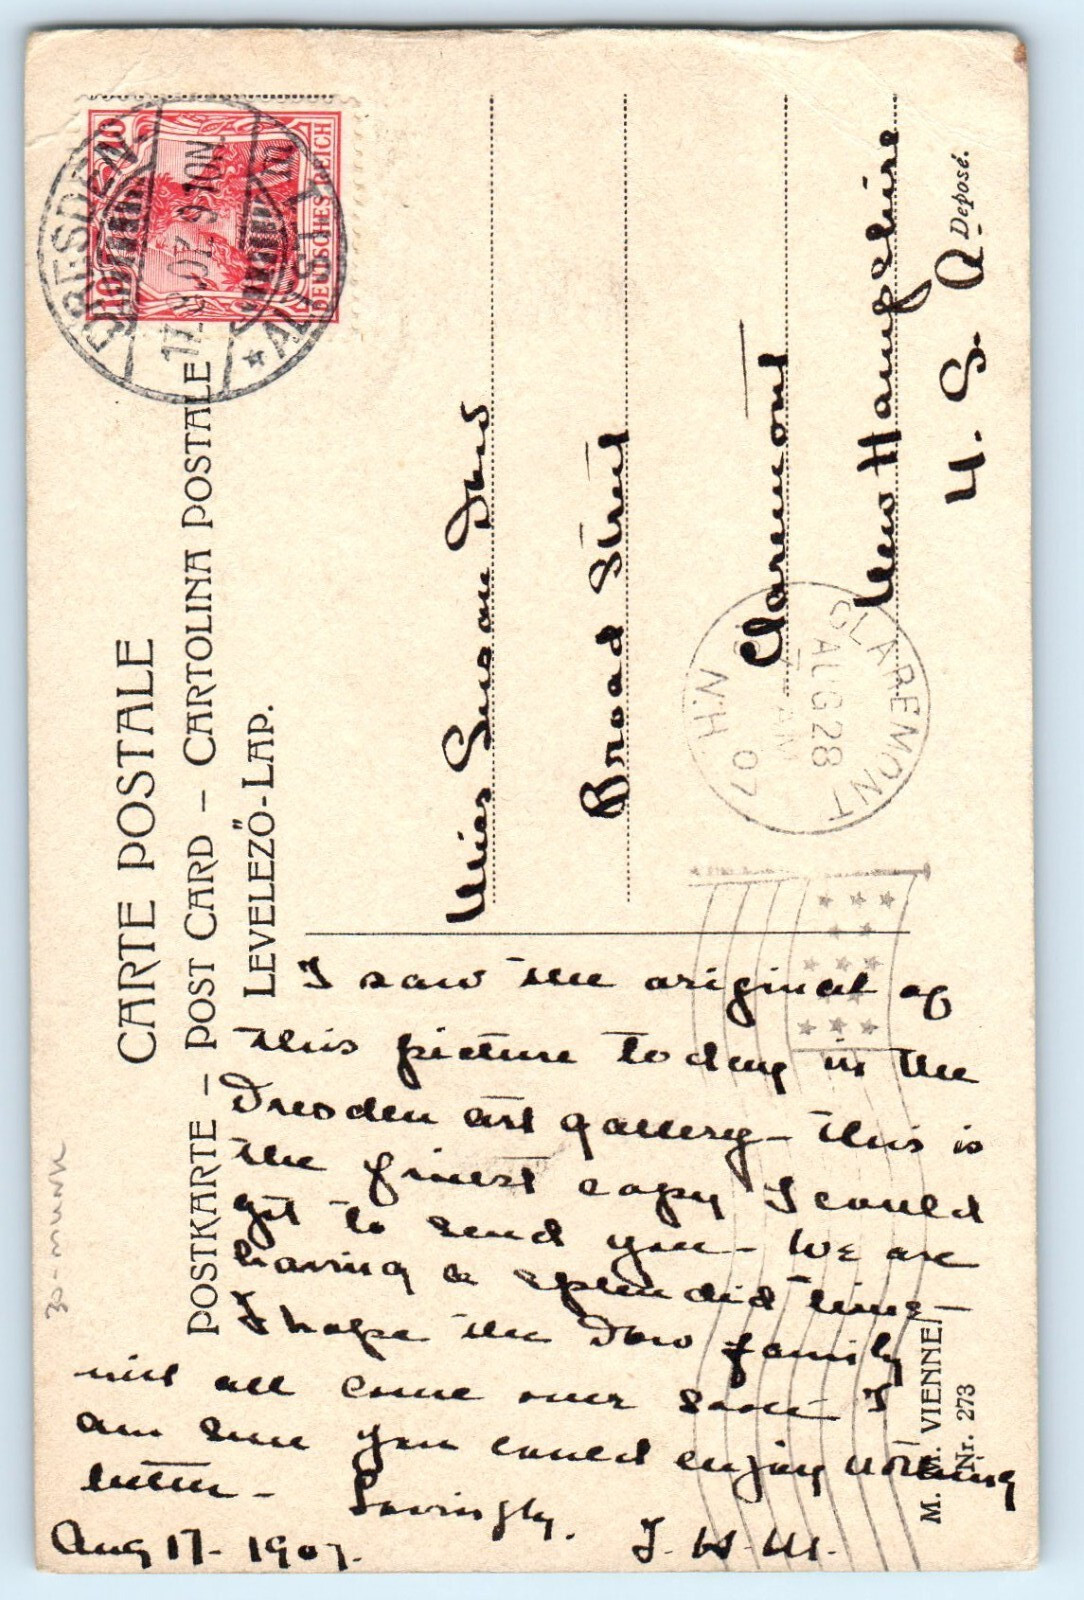 CARTE POSTALE
POSTKARTE – POST CARD – CARTOLINA POSTALE
LEVELEZŐ-LAP.
DRESDEN
17.8.07. 9-10N.
* ALTST. 1
10 10
DEUTSCHES REICH
Miss Susan Dow
Broad Street
Claremont
New Hampshire
U. S. A
Deposé.
CLAREMONT
AUG 28
AM
07
N.H.
I saw the original of
this picture today in the
Dresden art gallery – this is
the finest copy I could
get to send you – We are
having a splendid time –
I hope the Dow family
will all come over soon I
am sure you could enjoy nothing
better – Lovingly,
Aug 17 - 1907. J. W. M.
M. M. VIENNE
Nr. 273
30 - MUNK